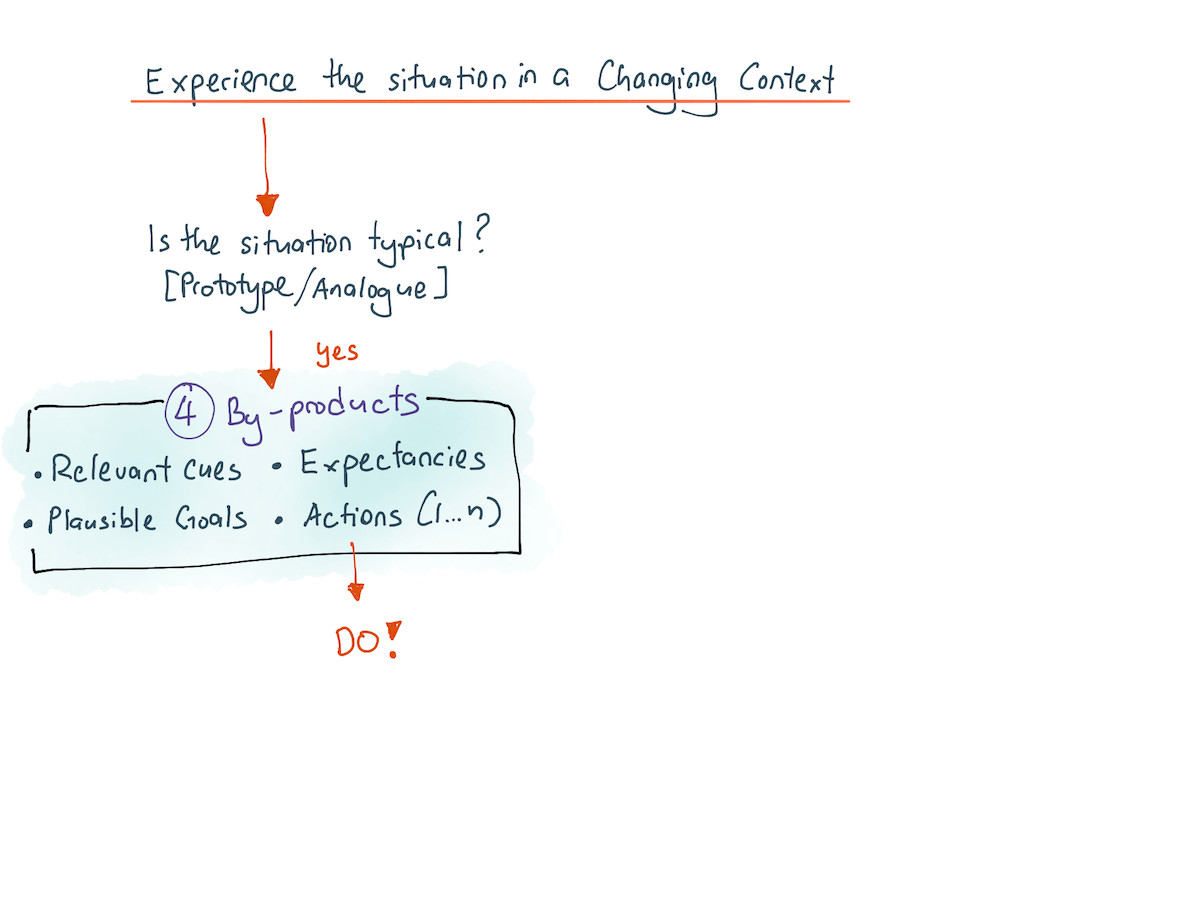 Experience the situation in a Changing Context
Is the situation typical?
[Prototype/Analogue]
yes
4 By-products
• Relevant cues • Expectancies
• Plausible Goals • Actions (1...n)
DO!